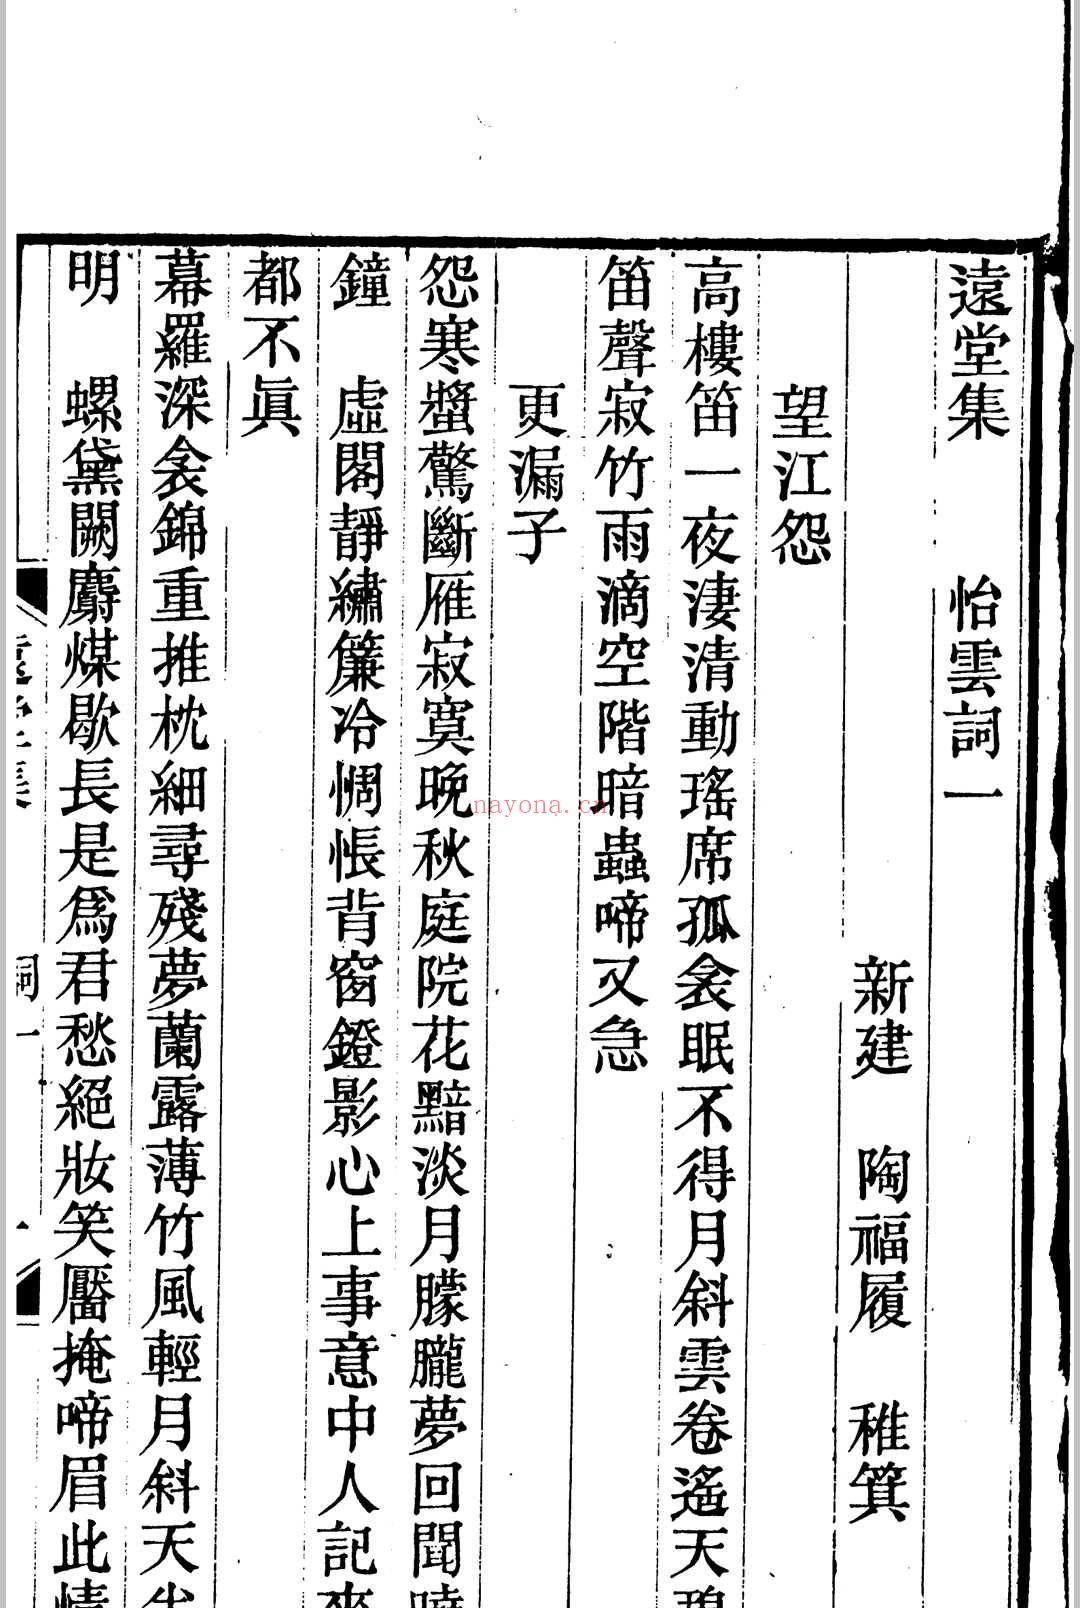 遠堂集　怡雲詞一
新建　陶福履　稚箕
望江怨
高樓笛一夜淒清動瑤席孤衾眠不得月斜雲卷遙天碧
笛聲寂竹雨滴空階暗蟲啼又急
更漏子
怨寒螿驚斷雁寂寞晚秋庭院花黯淡月朦朧夢回聞曉
鐘　虛閣靜繡簾冷惆悵背窗鐙影心上事意中人記來
都不眞
幕羅深衾錦重推枕細尋殘夢蘭露薄竹風輕月斜天尘
明　螺黛闕麝煤歇長是爲君愁絕妝笑靨掩啼眉此情
遠堂集　詞一　一
nayona.cn